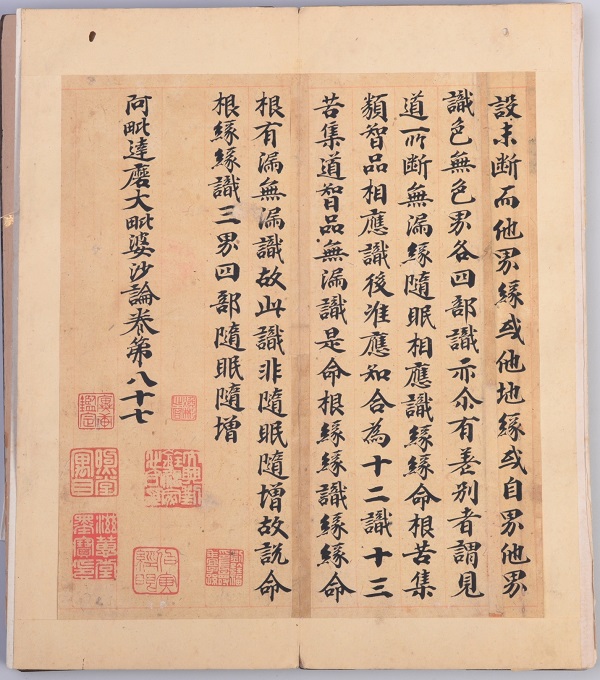 設未断而他界緣或他地緣或自界他界
識色無色界各四部識亦尒有差別者謂見
道所断無漏緣隨眠相應識緣緣命根苦集
類智品相應識後准應知合為十二識十三
苦集道智品無漏識是命根緣緣識緣緣命
根有漏無漏識故此識非隨眠隨增故説命
根緣緣識三界四部隨眠隨增
阿毗達磨大毗婆沙論卷第八十七